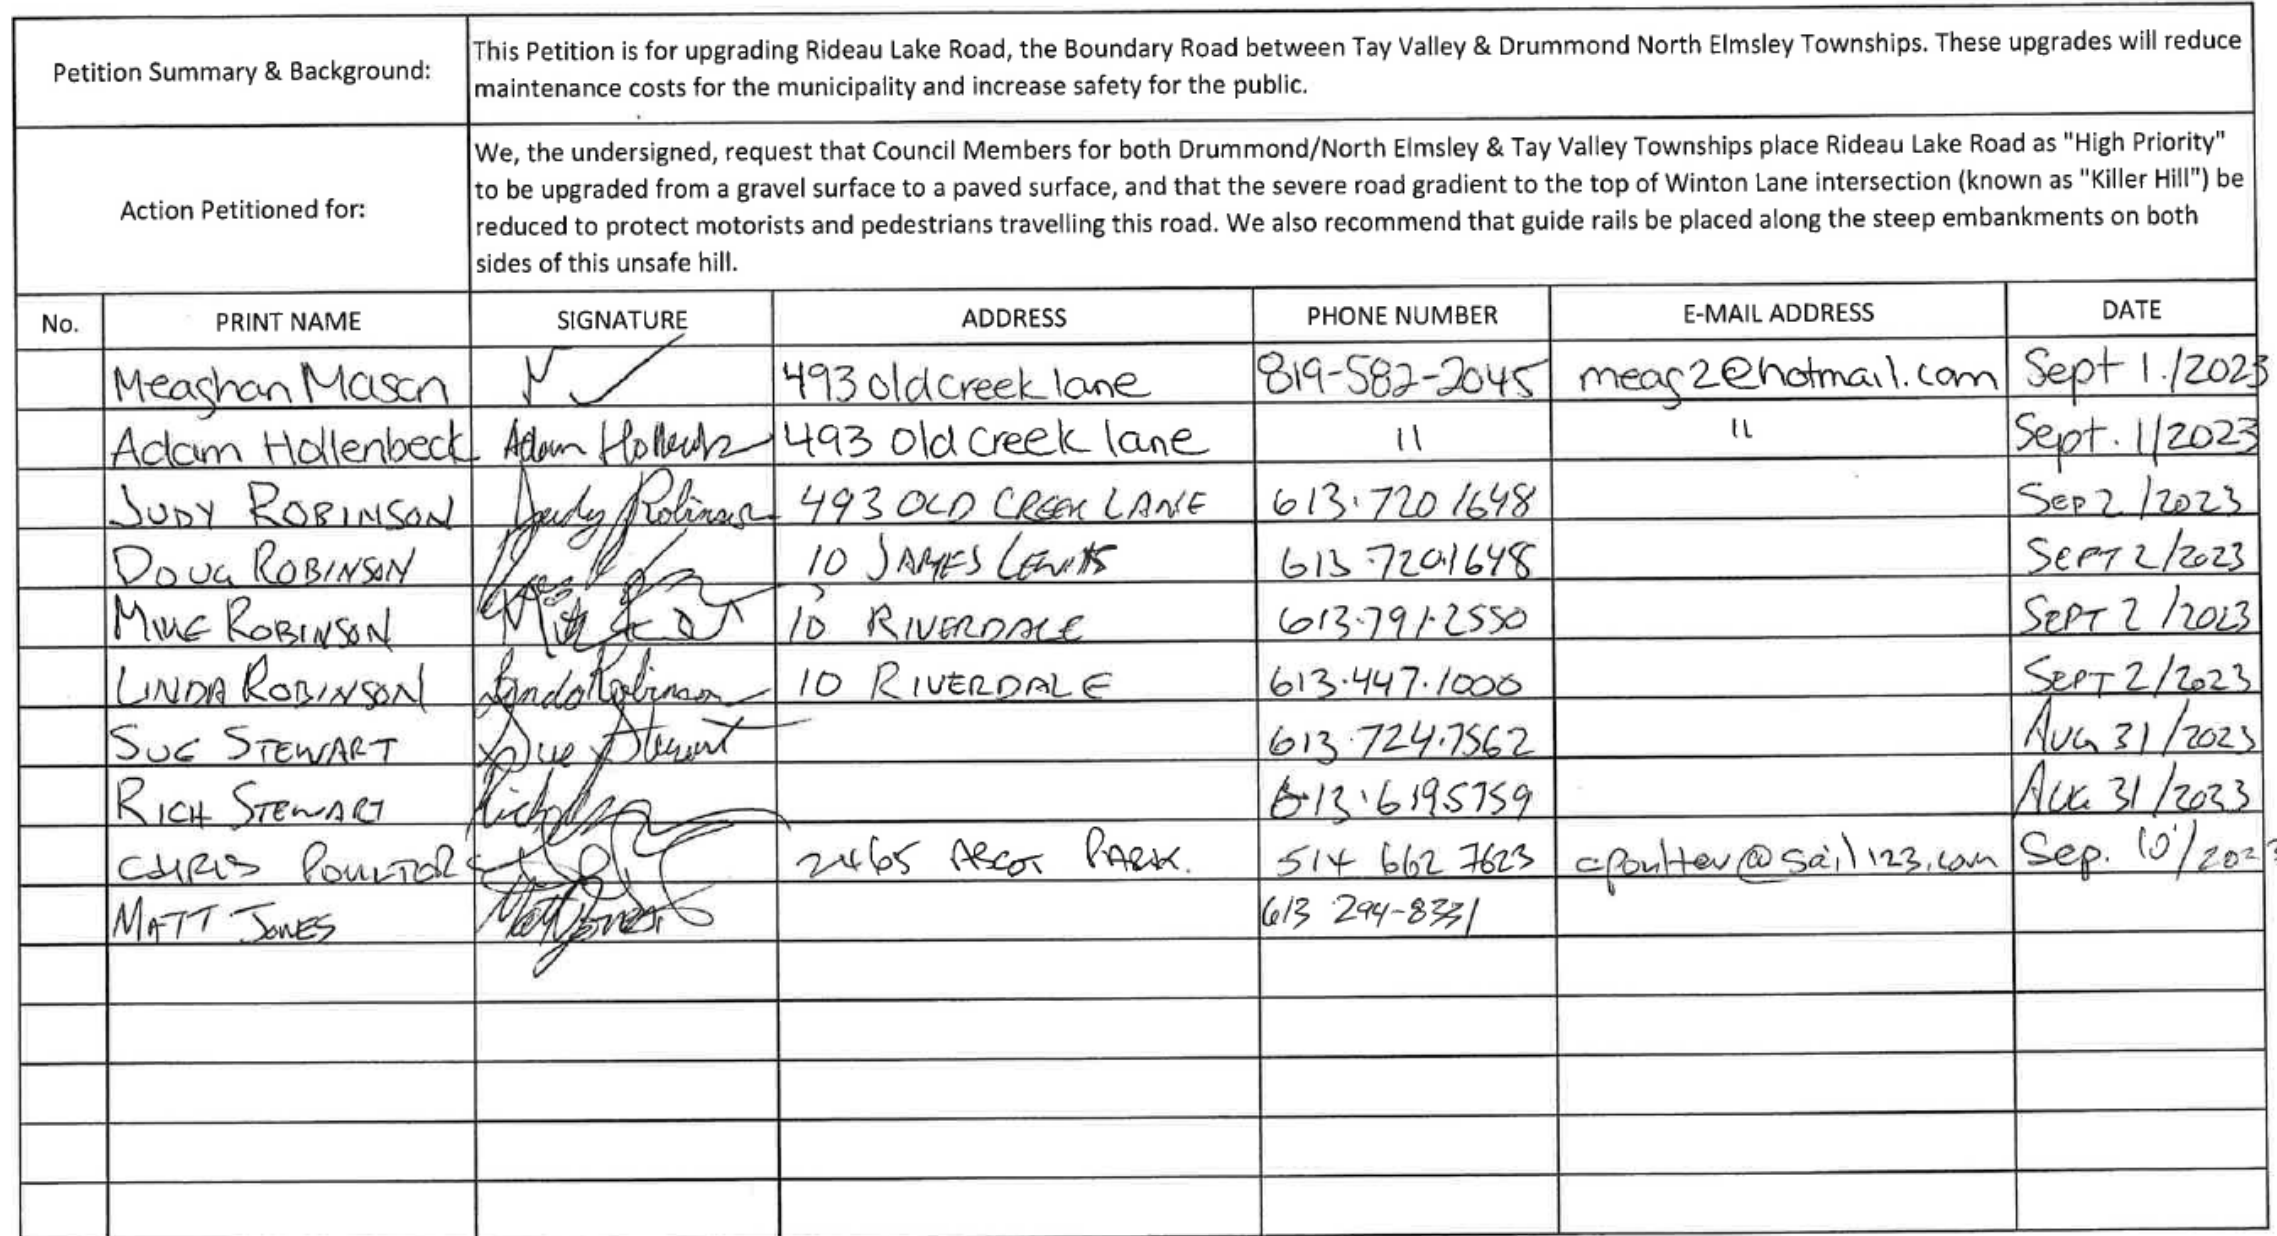 Petition Summary & Background:
This Petition is for upgrading Rideau Lake Road, the Boundary Road between Tay Valley & Drummond North Elmsley Townships. These upgrades will reduce
maintenance costs for the municipality and increase safety for the public.
Action Petitioned for:
We, the undersigned, request that Council Members for both Drummond/North Elmsley & Tay Valley Townships place Rideau Lake Road as "High Priority"
to be upgraded from a gravel surface to a paved surface, and that the severe road gradient to the top of Winton Lane intersection (known as "Killer Hill") be
reduced to protect motorists and pedestrians travelling this road. We also recommend that guide rails be placed along the steep embankments on both
sides of this unsafe hill.
No. PRINT NAME SIGNATURE ADDRESS PHONE NUMBER E-MAIL ADDRESS DATE
Meaghan Mason 493 old creek lane 819-582-2045 meag2@hotmail.com Sept 1./2023
Adam Hollenbeck Adam 493 old creek lane 11 11 Sept. 1/2023
JUDY ROBINSON Judy Robinson 493 OLD CREEK LANE 613.720 1648 SEP 2/2023
DOUG ROBINSON 10 JAMES LEWIS 613.720.1648 SEPT 2/2023
MIKE ROBINSON 10 RIVERDALE 613.791.2550 SEPT 2/2023
LINDA ROBINSON Linda Robinson 10 RIVERDALE 613.447.1000 SEPT 2/2023
SUE STEWART Sue Stewart 613.724.7562 AUG 31/2023
RICH STEWART 613.619.5759 AUG 31/2023
CHRIS POULTOR 2465 ASCOT PARK. 514 662 7623 cpoulter@sail123.com Sep. 10/202
MATT JONES Matt Jones 613 294-8331